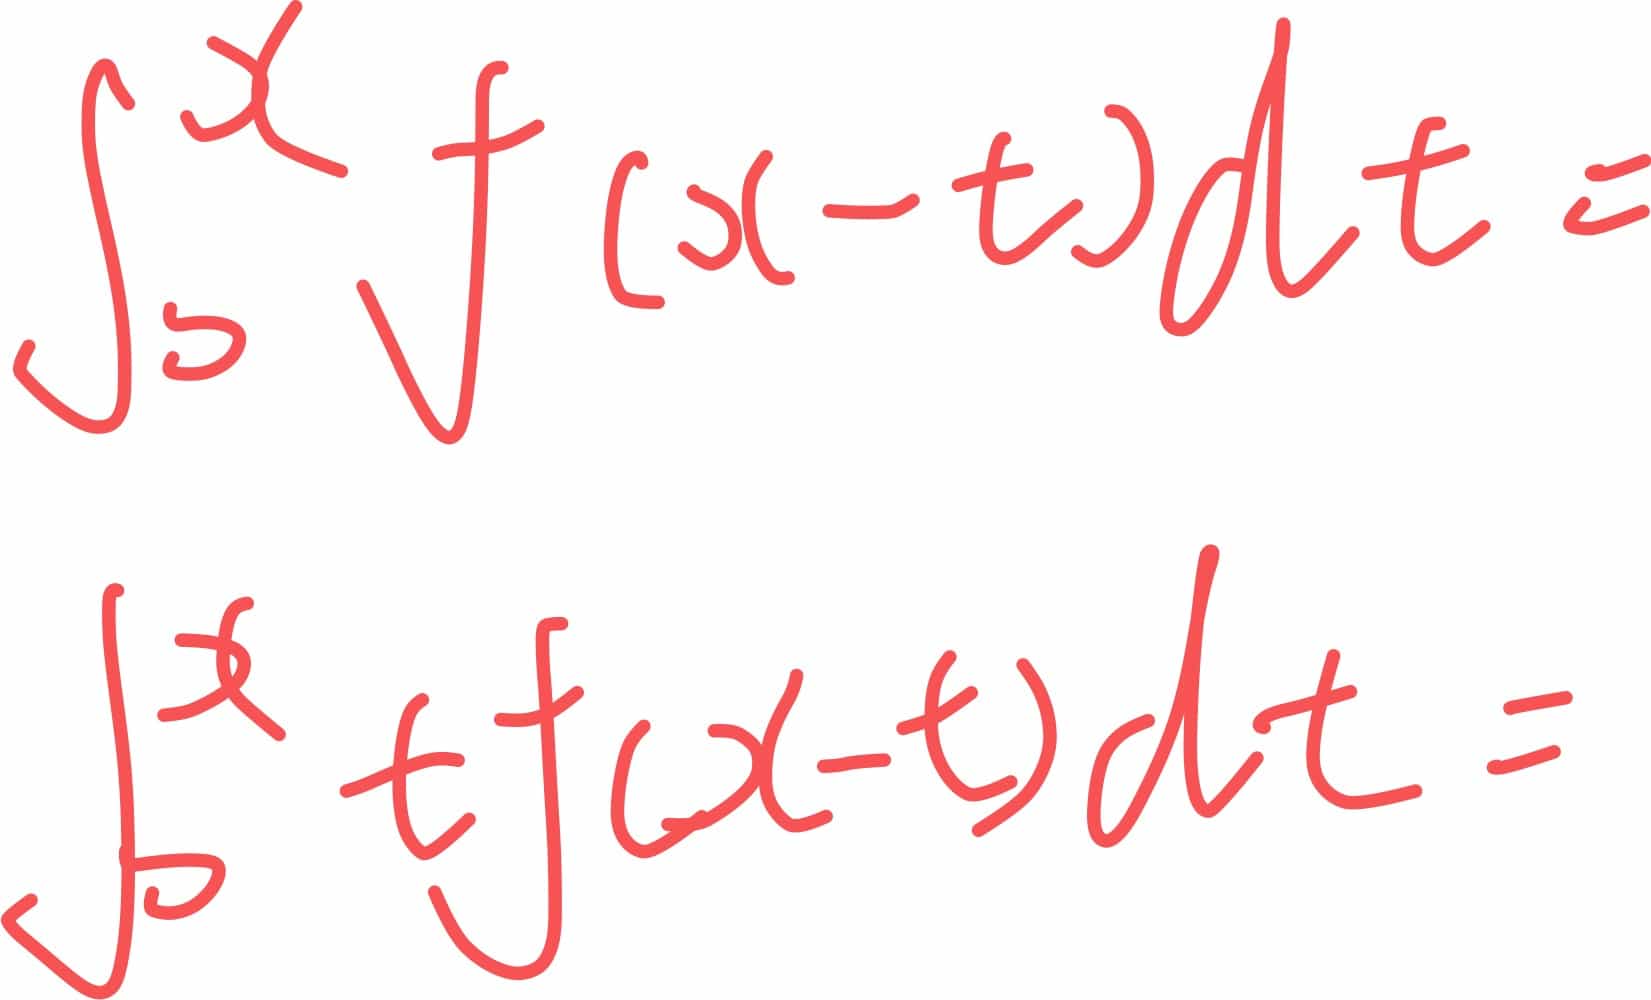 ∫₀ˣ f(x-t)dt =
∫₀ˣ tf(x-t)dt =